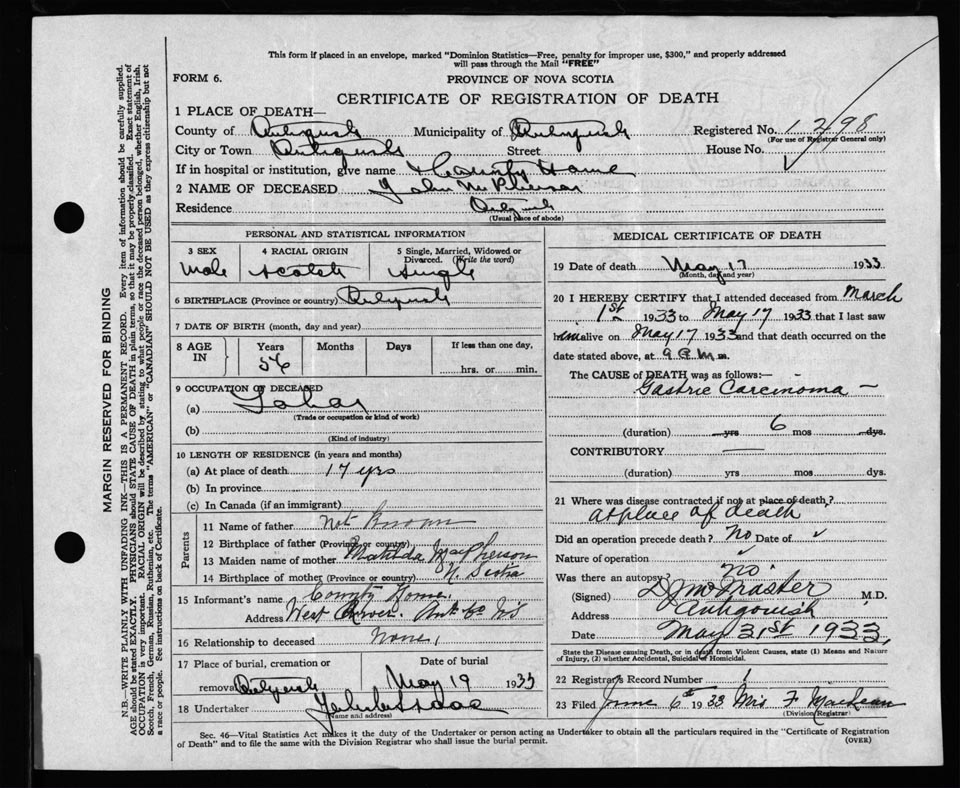 This form if placed in an envelope, marked "Dominion Statistics—Free, penalty for improper use, $300," and properly addressed
will pass through the Mail "FREE"
FORM 6.
PROVINCE OF NOVA SCOTIA
CERTIFICATE OF REGISTRATION OF DEATH
1 PLACE OF DEATH—
County of Antigonish Municipality of Antigonish Registered No. 1298
(For use of Registrar General only)
City or Town Antigonish Street House No.
If in hospital or institution, give name County Home
2 NAME OF DECEASED John McPherson
Residence Antigonish
(Usual place of abode)
PERSONAL AND STATISTICAL INFORMATION
3 SEX 4 RACIAL ORIGIN 5 Single, Married, Widowed or
Divorced. (Write the word)
Male Scotch Single
6 BIRTHPLACE (Province or country) Antigonish
7 DATE OF BIRTH (month, day and year)
8 AGE IN Years Months Days If less than one day,
56 hrs. or min.
9 OCCUPATION OF DECEASED
(a) Labor
(Trade or occupation or kind of work)
(b)
(Kind of industry)
10 LENGTH OF RESIDENCE (in years and months)
(a) At place of death 17 yrs
(b) In province
(c) In Canada (if an immigrant)
Parents
11 Name of father Not Known
12 Birthplace of father (Province or country)
13 Maiden name of mother Matilda MacPherson
14 Birthplace of mother (Province or country) N. Scotia
15 Informant's name County Home.
Address West River. Ant. Co NS
16 Relationship to deceased None.
17 Place of burial, cremation or Date of burial
removal Antigonish May 19 1933
18 Undertaker
(Name and address)
MEDICAL CERTIFICATE OF DEATH
19 Date of death May 17 1933
(Month, day and year)
20 I HEREBY CERTIFY that I attended deceased from March
1st 1933 to May 17 1933 that I last saw
him alive on May 17 1933 and that death occurred on the
date stated above, at 9 a.m. m.
The CAUSE of DEATH was as follows:—
Gastric Carcinoma —
(duration) yrs 6 mos dys.
CONTRIBUTORY —
(duration) yrs mos dys.
21 Where was disease contracted if not at place of death?
at place of death
Did an operation precede death? No Date of
Nature of operation
Was there an autopsy? no.
(Signed) M.D.
Address Antigonish
Date May 31st 1933
State the Disease causing Death, or in death from Violent Causes, state (1) Means and Nature
of Injury, (2) whether Accidental, Suicidal or Homicidal.
22 Registrar's Record Number
23 Filed June 6th 1933 Mrs F. MacLean
(Division Registrar)
Sec. 46—Vital Statistics Act makes it the duty of the Undertaker or person acting as Undertaker to obtain all the particulars required in the "Certificate of Registration
of Death" and to file the same with the Division Registrar who shall issue the burial permit.
(OVER)
MARGIN RESERVED FOR BINDING
N.B.—WRITE PLAINLY WITH UNFADING INK—THIS IS A PERMANENT RECORD. Every item of information should be carefully supplied.
AGE should be stated EXACTLY. PHYSICIANS should STATE CAUSE OF DEATH in plain terms, so that it may be properly classified. Exact statement of
OCCUPATION is very important. RACIAL ORIGIN will be described by stating to what people or race the deceased person belonged, whether English, Irish,
Scotch, French, German, Russian, Ruthenian, etc. The terms "AMERICAN" or "CANADIAN" SHOULD NOT BE USED as they express citizenship but not
a race or people. See instructions on back of Certificate.